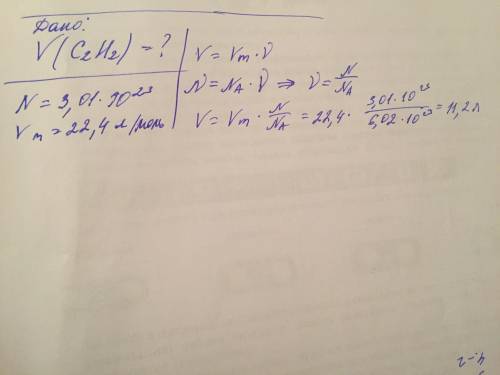 Дано:
V(C₂H₂) = ?
N = 3,01·10²³
Vm = 22,4 л/моль
V = Vm · ν
N = NA · ν ⇒ ν = N/NA
V = Vm · N/NA = 22,4 · 3,01·10²³/6,02·10²³ = 11,2 л